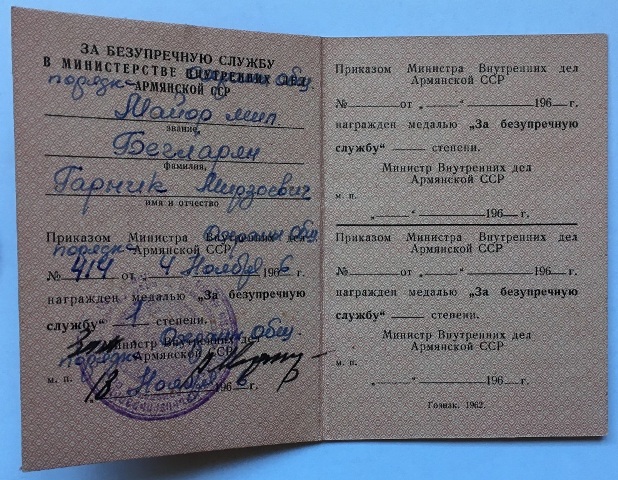 ЗА БЕЗУПРЕЧНУЮ СЛУЖБУ
В МИНИСТЕРСТВЕ ВНУТРЕННИХ ДЕЛ
Охраны общ.
порядка АРМЯНСКОЙ ССР
Майор мип
звание,
Бегларян
фамилия,
Гарник Мирзоевич
имя и отчество
Приказом Министра Внутренних дел
Охраны общ.
порядка Армянской ССР
№ 414 от „ 4 Ноября 1966 г.
награжден медалью „За безупречную
службу“ 1 степени.
Министр Внутренних дел
Охраны общ.
порядка Армянской ССР
м. п.
18 Ноября 1966 г.
Приказом Министра Внутренних дел
Армянской ССР
№ от „ “ 196 г.
награжден медалью „За безупречную
службу“ степени.
Министр Внутренних дел
Армянской ССР
м. п.
„ “ 196 г.
Приказом Министра Внутренних дел
Армянской ССР
№ от „ “ 196 г.
награжден медалью „За безупречную
службу“ степени.
Министр Внутренних дел
Армянской ССР
м. п.
„ “ 196 г.
Гознак. 1962.